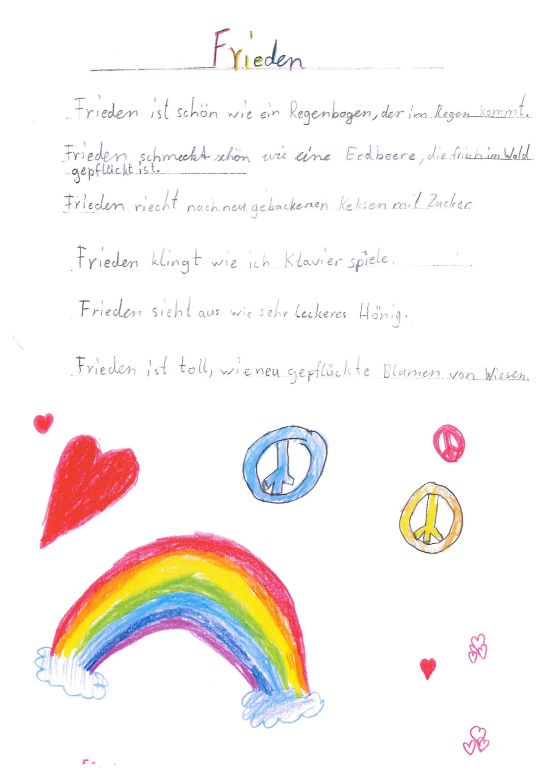 Frieden
Frieden ist schön wie ein Regenbogen, der im Regen kommt.
Frieden schmeckt schön wie eine Erdbeere, die frisch im Wald
gepflückt ist.
Frieden riecht nach neu gebackenen Keksen mit Zucker
Frieden klingt wie ich Klavier spiele.
Frieden sieht aus wie sehr leckeres Hönig.
Frieden ist toll, wie neu gepflückte Blumen von Wiesen.